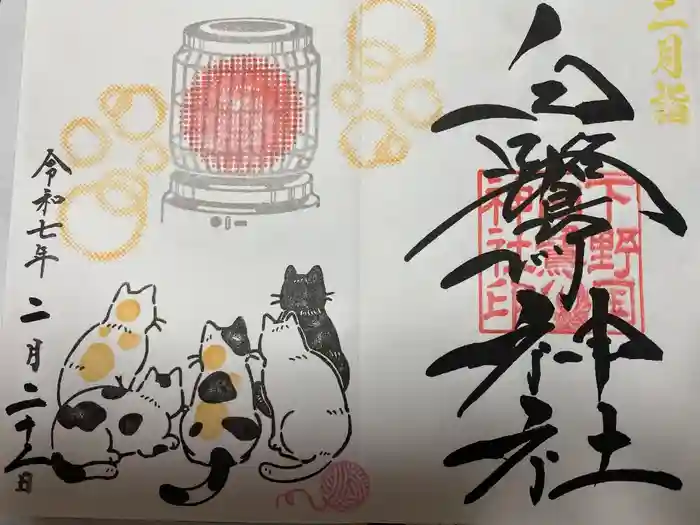 二月詣
白鷺神社
下野国
白鷺
神社印
令和七年二月二十八日